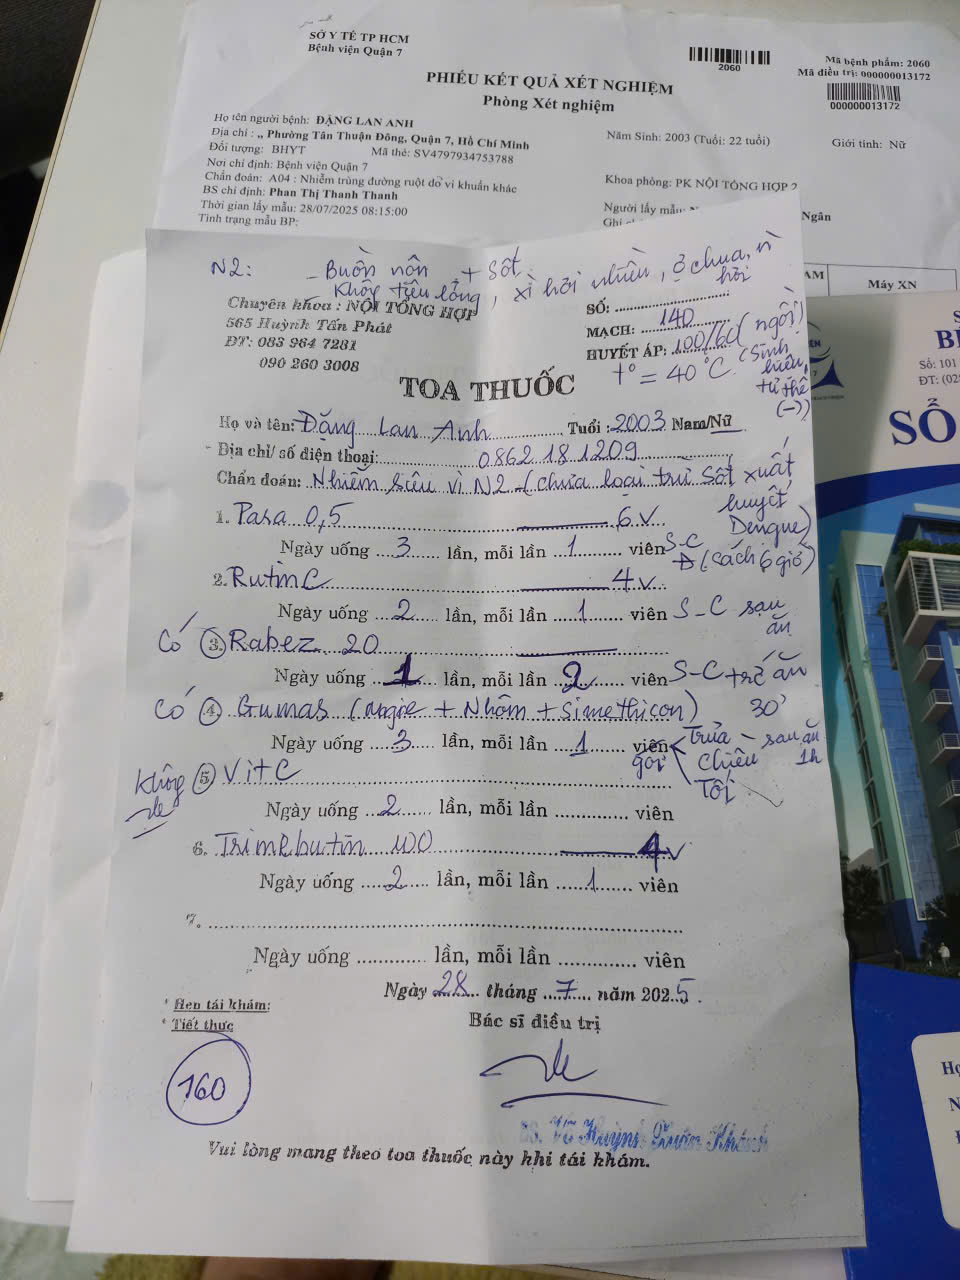 SỞ Y TẾ TP HCM
Bệnh viện Quận 7
2060
Mã bệnh phẩm: 2060
Mã điều trị: 000000013172
000000013172
PHIẾU KẾT QUẢ XÉT NGHIỆM
Phòng Xét nghiệm
Họ tên người bệnh: ĐẶNG LAN ANH
Năm Sinh: 2003 (Tuổi: 22 tuổi)
Giới tính: Nữ
Địa chỉ : ,, Phường Tân Thuận Đông, Quận 7, Hồ Chí Minh
Đối tượng: BHYT Mã thẻ: SV4797934753788
Nơi chỉ định: Bệnh viện Quận 7
Chẩn đoán: A04 : Nhiễm trùng đường ruột do vi khuẩn khác
Khoa phòng: PK NỘI TỔNG HỢP 2
BS chỉ định: Phan Thị Thanh Thanh
Người lấy mẫu: N
Ngân
Thời gian lấy mẫu: 28/07/2025 08:15:00
Ghi
Tình trạng mẫu BP:
AM
Máy XN
N2: - Buồn nôn + Sốt
Không tiêu lỏng, xì hơi nhiều, ợ chua,
hơi
Chuyên khoa : NỘI TỔNG HỢP
565 Huỳnh Tấn Phát
ĐT: 083 964 7281
090 260 3008
SỐ:
MẠCH: 140
HUYẾT ÁP: 100/60 (ngồi)
t° = 40°C. (Sinh
hiệu
tư thế
(-))
TOA THUỐC
Họ và tên: Đặng Lan Anh Tuổi : 2003 Nam/Nữ
Địa chỉ/ số điện thoại: 0862181209
Chẩn đoán: Nhiễm siêu vi N2 - (chưa loại trừ Sốt xuất
huyết
Dengue)
1. Para 0,5 6 v
Ngày uống 3 lần, mỗi lần 1 viên S-C
(cách 6 giờ)
2. Rutin C 4 v
Ngày uống 2 lần, mỗi lần 1 viên S-C sau
ăn
Có 3. Rabez 20
Ngày uống 1 lần, mỗi lần 2 viên S-C trc ăn
30'
Có 4. Gumas (Magie + Nhôm + Simethicon)
Ngày uống 3 lần, mỗi lần 1 viên
gói
Trưa - sau ăn
Chiều 1h
Tối
Không
5. Vit C
Ngày uống 2 lần, mỗi lần viên
6. Trimebutin 100 4v
Ngày uống 2 lần, mỗi lần 1 viên
7.
Ngày uống lần, mỗi lần viên
Ngày 28 tháng 7 năm 2025.
* Hẹn tái khám:
* Tiết thực
Bác sĩ điều trị
160
BS. Võ Huỳnh Xuân Khánh
Vui lòng mang theo toa thuốc này khi tái khám.
Số: 101
ĐT: (028
SỔ